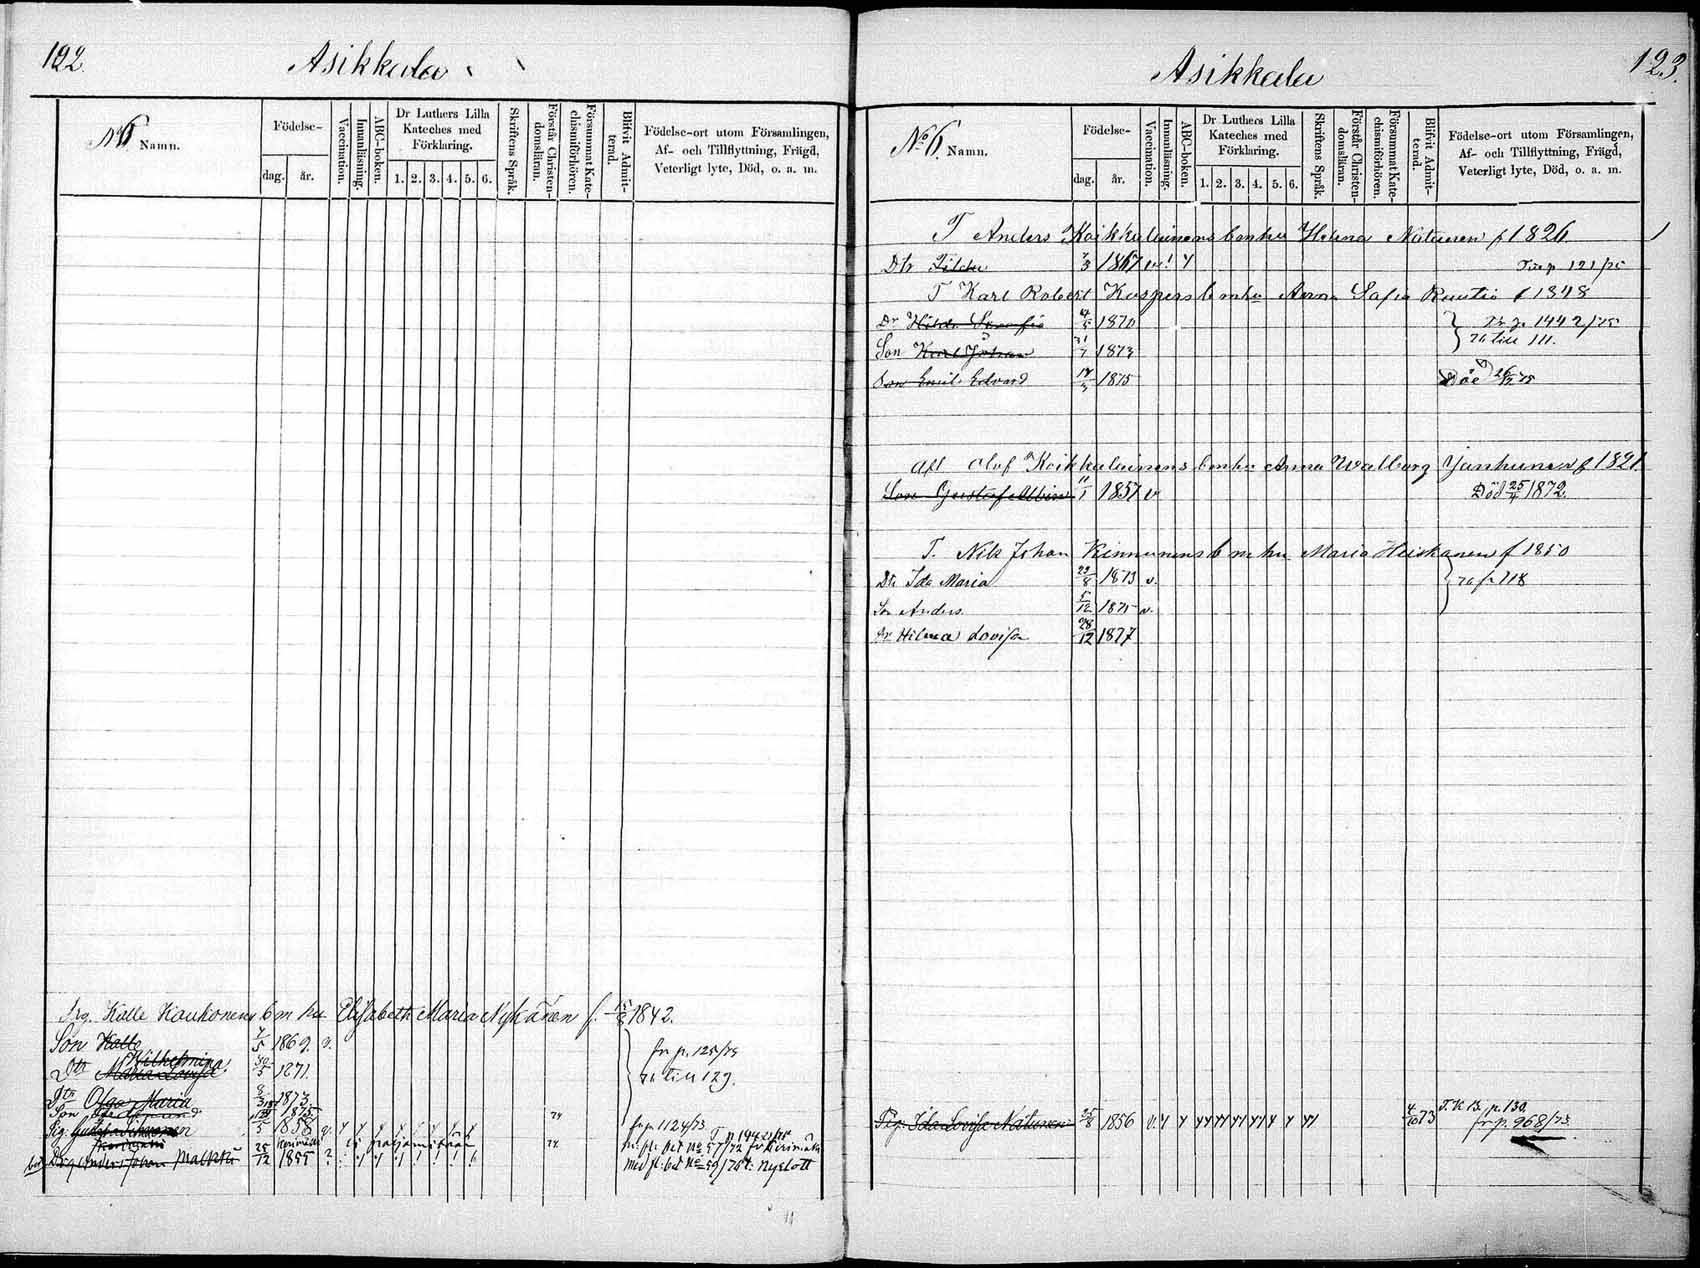 122.
Asikkala
No 6 Namn.
Födelse-
dag. år.
Vaccination.
Innanläsning.
ABC-boken.
Dr Luthers Lilla
Kateches med
Förklaring.
1. 2. 3. 4. 5. 6.
Skriftens Språk.
Förstår Christen-
domsläran.
Försummat Kate-
chismiförhören.
Blifvit Admit-
terad.
Födelse-ort utom Församlingen,
Af- och Tillflyttning, Frägd,
Veterligt lyte, Död, o. a. m.
Drg. Kalle Kaukonens b m hu Elisabeth Maria Nykänen f. 1842.
Son Kalle 7/5 1869. v.
Dtr Wilhelmina 1871.
fr p. 125/73
till 129.
Dtr Olga Maria 1873
Son 1875
Pig. 1858
fr p. 1124/73
Drg Anders Johan Malkki 25/12 1855
med fl: bet No 59/76 t: Nyslott
123.
Asikkala
No 6. Namn.
Födelse-
dag. år.
Vaccination.
Innanläsning.
ABC-boken.
Dr Luthers Lilla
Kateches med
Förklaring.
1. 2. 3. 4. 5. 6.
Skriftens Språk.
Förstår Christen-
domsläran.
Försummat Kate-
chismiförhören.
Blifvit Admit-
terad.
Födelse-ort utom Församlingen,
Af- och Tillflyttning, Frägd,
Veterligt lyte, Död, o. a. m.
T Anders Koikkalainens b m hu Helena Natunen f 1826
Dtr Tilda 7/3 1867 v. p 121/75
T Karl Robert Kaspers b m hu Anna Sofia Rautio f 1848
Dr Hilda Serafia 4/5 1870 p 1442/75
Son Karl Johan 31/7 1873 till 111.
Son Emil Edvard 17/3 1875 Död 26/12 75
Afl Olof Koikkalainens b m hu Anna Walborg Janhunen f 1821
Son Gustaf Albin 11/1 1857 v. Död 25/4 1872.
T. Nils Johan Kinnunens b m hu Maria Heiskanen f 1850
Dtr Ida Maria 29/8 1873 v. p 118
Son Anders 5/12 1875 v.
Dr Hilma Lovisa 28/12 1877
Pig. Ida Lovisa Natunen 25/8 1856 v. 4/6 73 T. K B. p. 130.
fr p. 968/73.